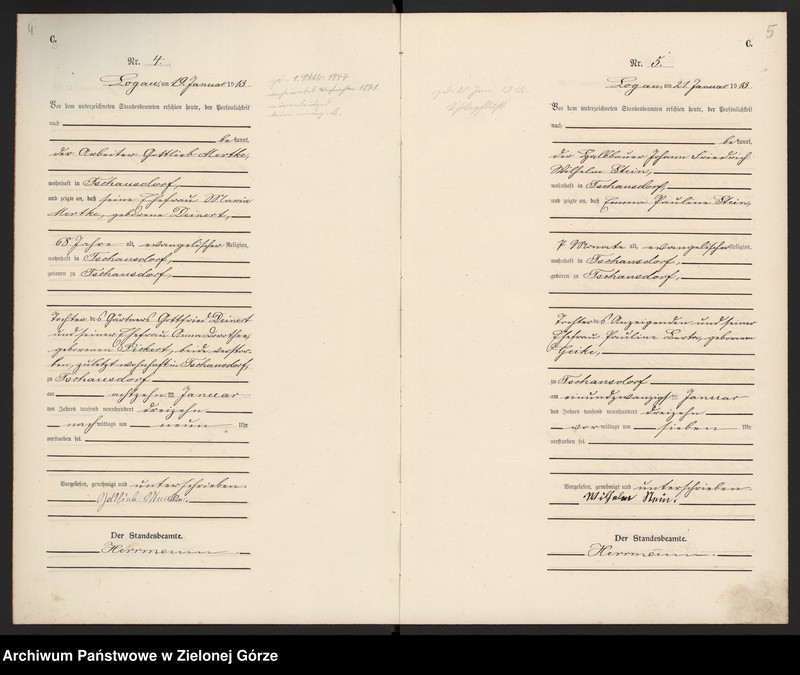 4
C.
Nr. 4.
Logau, am 19. Januar 1913
Vor dem unterzeichneten Standesbeamten erschien heute, der Persönlichkeit
nach
be kannt,
der Arbeiter Gottlieb Mertke,
wohnhaft in Tschausdorf,
und zeigte an, daß seine Ehefrau Maria
Mertke, geborene Deinert,
68 Jahre alt, evangelischer Religion,
wohnhaft in Tschausdorf,
geboren zu Tschausdorf,
Tochter des Gärtners Gottfried Deinert
und seiner Ehefrau Anna Dorothea,
geborenen beide verstor-
ben, zuletzt wohnhaft in Tschausdorf,
zu Tschausdorf
am achtzehn ten Januar
des Jahres tausend neunhundert dreizehn
nach mittags um neun Uhr
verstorben sei.
Vorgelesen, genehmigt und unterschrieben.
Gottlieb
Der Standesbeamte.
Herrmann.
5
C.
Nr. 5.
Logau, am 21. Januar 1913
Vor dem unterzeichneten Standesbeamten erschien heute, der Persönlichkeit
nach
be kannt,
der Halbbauer Johann Friedrich
Wilhelm Stein,
wohnhaft in Tschausdorf,
und zeigte an, daß Emma Pauline Stein,
7 Monate alt, evangelischer Religion,
wohnhaft in Tschausdorf,
geboren zu Tschausdorf,
Tochter des Anzeigenden und seiner
Ehefrau Pauline Berta, geborenen
Geike,
zu Tschausdorf
am einundzwanzigsten Januar
des Jahres tausend neunhundert dreizehn
vor mittags um sieben Uhr
verstorben sei.
Vorgelesen, genehmigt und unterschrieben.
Wilhelm Stein.
Der Standesbeamte.
Herrmann.
Archiwum Państwowe w Zielonej Górze